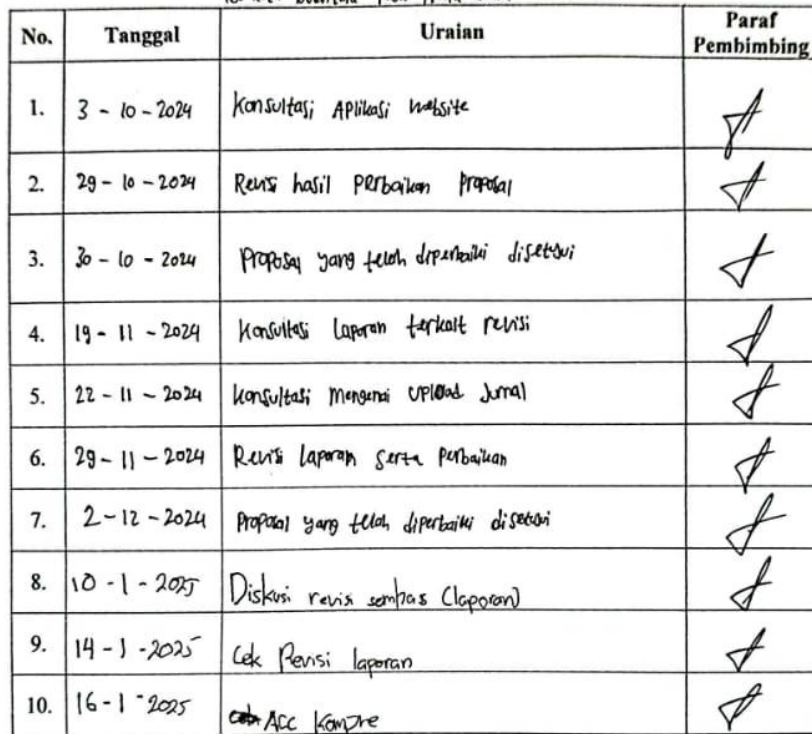 No. Tanggal Uraian Paraf Pembimbing
1. 3 - 10 - 2024 Konsultasi Aplikasi Website
2. 29 - 10 - 2024 Revisi hasil perbaikan proposal
3. 30 - 10 - 2024 Proposal yang telah diperbaiki disetujui
4. 19 - 11 - 2024 Konsultasi Laporan terkait revisi
5. 22 - 11 - 2024 Konsultasi Mengenai Upload Jurnal
6. 29 - 11 - 2024 Revisi Laporan Serta Perbaikan
7. 2 - 12 - 2024 Proposal yang telah diperbaiki disetujui
8. 10 - 1 - 2025 Diskusi revisi semhas (laporan)
9. 14 - 1 - 2025 Cek Revisi laporan
10. 16 - 1 - 2025 ACC Kompre